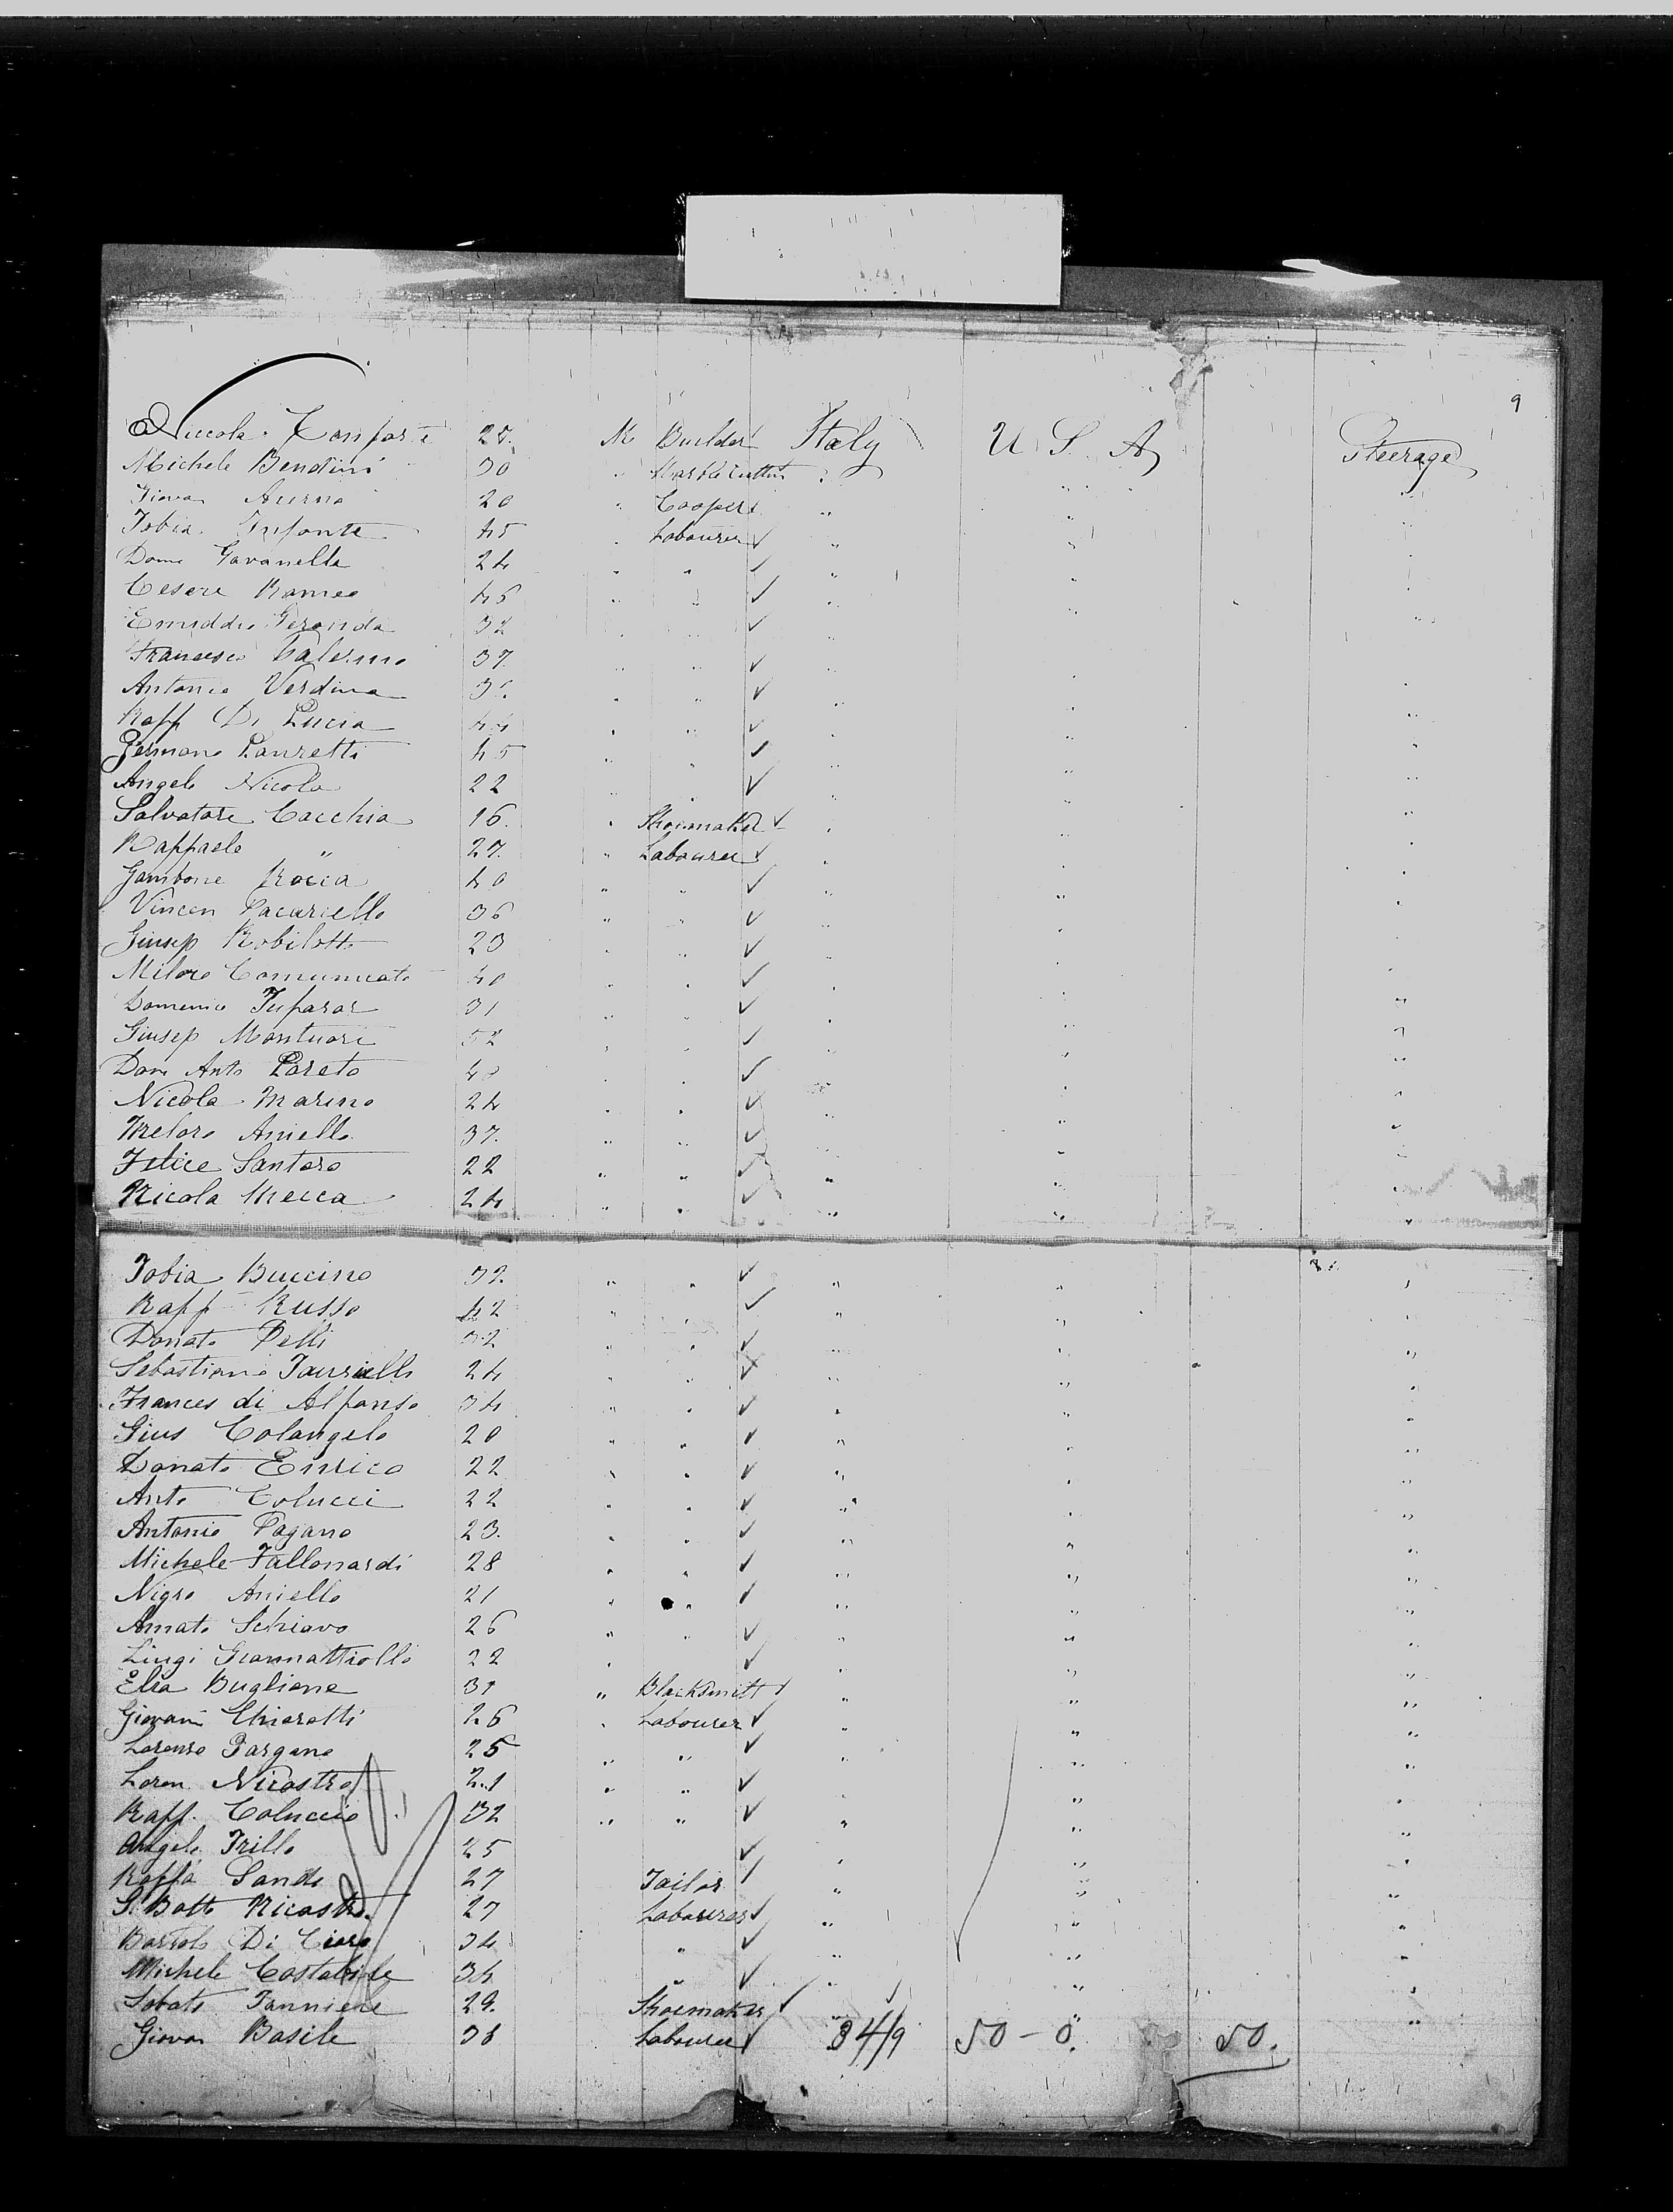 9
Niccola Conforte 25. M Builder Italy U S A Steerage
Michele Bendini 30 " Marble cutter "
Giova Auerna 20 " Cooper " " "
Tobia Infonte 45 " Labourer " " "
Dome Gavanella 24 " " " "
Cesere Romeo 46 " " " "
Emiddio Geronda 32 " " " "
Francesco Palermo 37. " " " "
Antonio Verdina " " " "
Raff Di Lucia 44 " " " "
Germano Lauretti 45 " " " "
Angelo Nicola 22 " " " "
Salvatore Cacchia 16. " Shoemaker " " "
Raffaele " 27. " Labourer " " "
Gambone Rocca 40 " " " " "
Vincen Pacuriello 36 " " " " "
Giusep Robilotto 23 " " " " "
Miloro Comunicato 40 " " " " "
Domenico 31 " " " " "
Giusep Montuori 52 " " " " "
Dom Anto Loreto 40 " " " " "
Nicola Marino 24 " " " " "
Meloro Aniello 37. " " " " "
Felice Santoro 22 " " " " "
Nicola Mecca 24 " " " " "
Tobia Buccino 32. " " " " "
Raff Russo 42 " " " " "
Donato Pelli 32 " " " " "
Sebastiano Tauriello 24 " " " " "
Frances di Alfonso 34 " " " " "
Gius Colangelo 20 " " " " "
Donato Enrico 22 " " " " "
Anto Colucci 22 " " " " "
Antonio Pagano 23. " " " " "
Michele Fallonardi 28 " " " " "
Nigro Aniello 21 " " " " "
Amato Schiavo 26 " " " " "
Luigi Giannattiollo 22 " " " "
Elia Bugliane 31 " Blacksmith " " "
Giovani Chiarotti 26 " Labourer " " "
Lorenzo Gargano 25 " " " " "
Loren Nicastro 21 " " " "
Raff. Coluccio 32 " " " " "
Angelo Trillo 25 " " "
Raffa Sando 27 Tailor " " "
S. Botto Nicastro 27 Labourer " " "
Bartolo Di Ciaro 34 " " " "
Michele Costabile 34 " " " "
Sobato Tanniere 29. Shoemaker " " "
Giovan Basile 38 Labourer 34/9 50 - 0. 50.